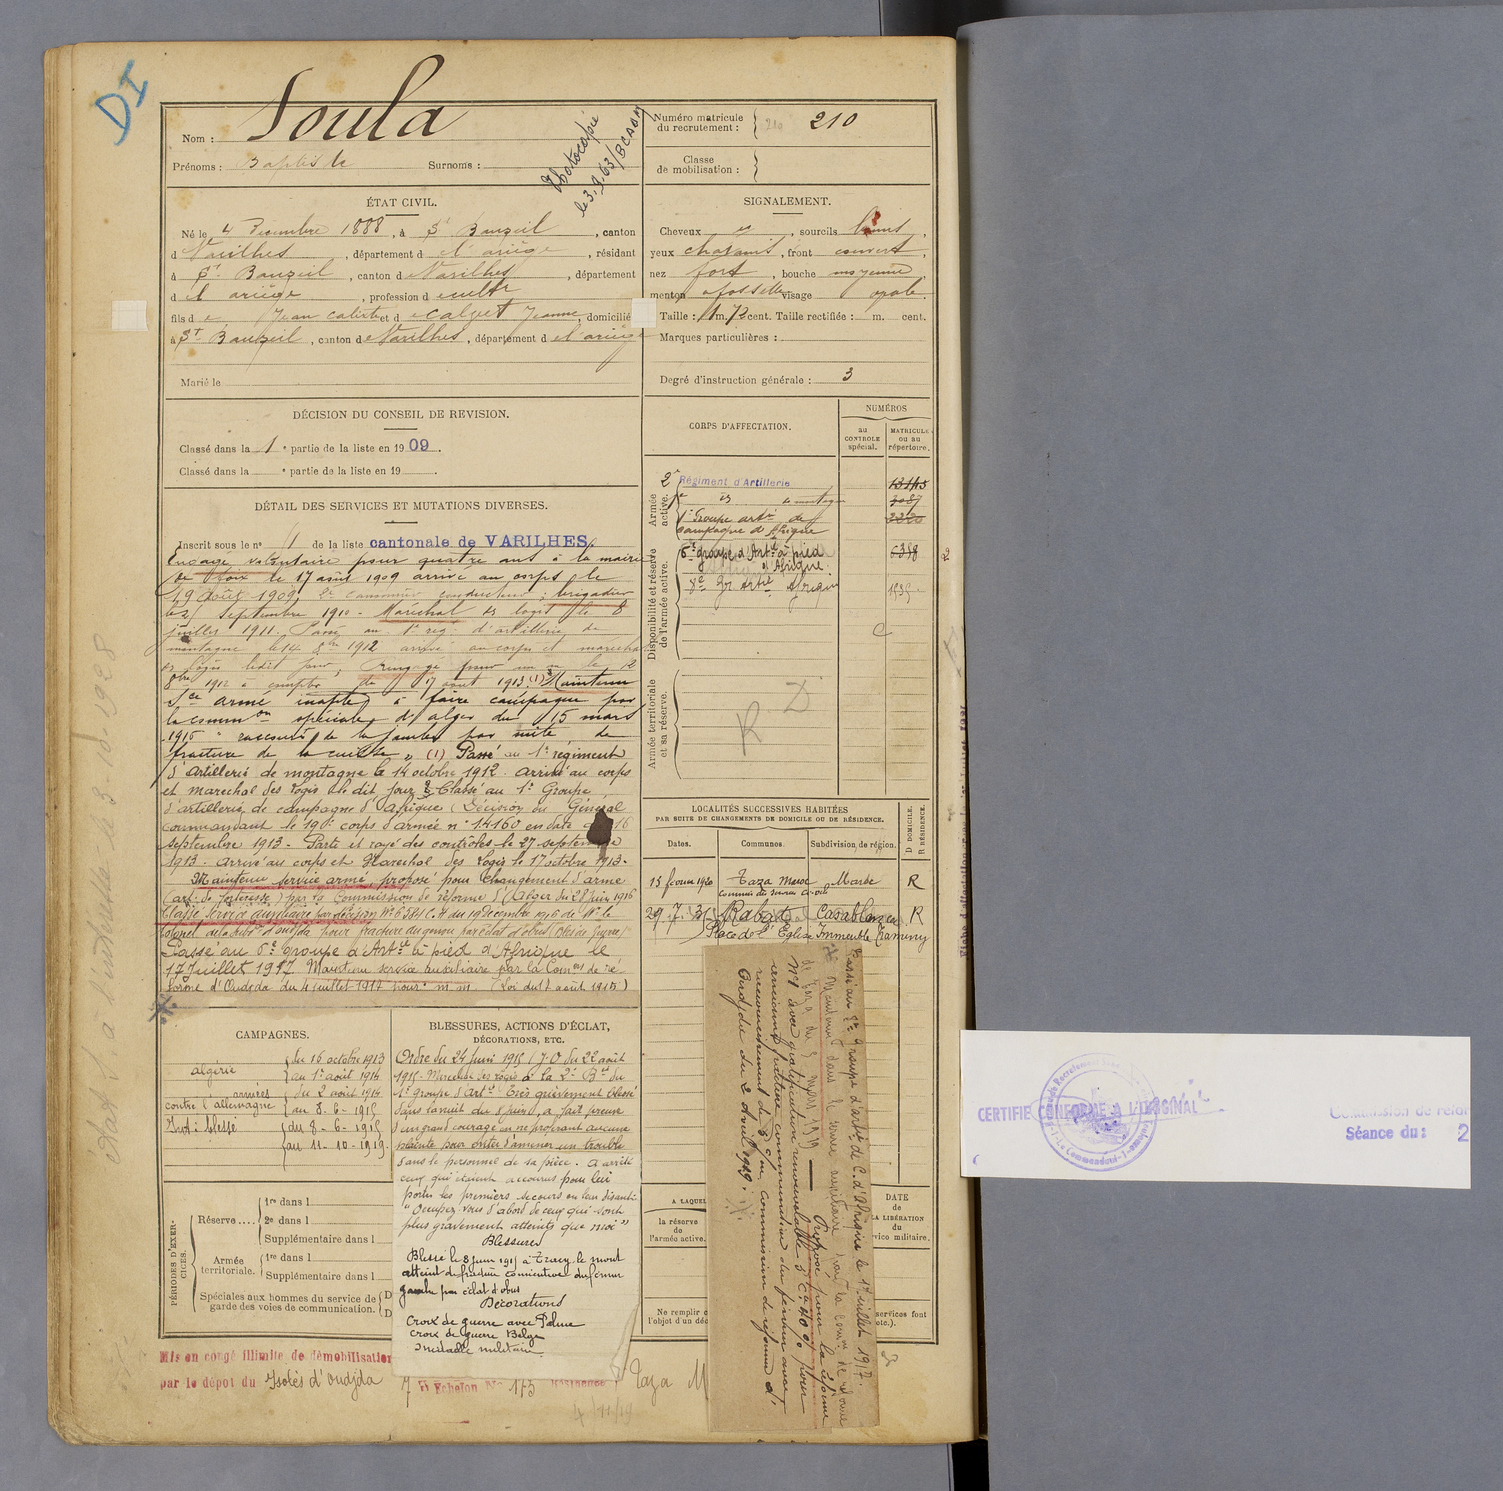 DI
Nom : Soula
Prénoms : Baptiste Surnoms :
Photocopié
le 3.9.63/BCAAM
Numéro matricule
du recrutement : 210 210
Classe
de mobilisation :
ÉTAT CIVIL.
Né le 4 Décembre 1888, à St Bauzeil, canton
d Varilhes, département d e l'ariège, résidant
à St Bauzeil, canton d e Varilhes, département
d e l'ariège, profession d e cultr
fils d e Jean Caliste et d e Calvet Jeanne, domiciliés
à St Bauzeil, canton d e Varilhes, département d e l'ariège
Marié le
SIGNALEMENT.
Cheveux et, sourcils bruns,
yeux chatains, front couvert,
nez fort, bouche moyenne,
menton à fossette visage ovale.
Taille : 1 m. 72 cent. Taille rectifiée : m. cent.
Marques particulières :
Degré d'instruction générale : 3
DÉCISION DU CONSEIL DE REVISION.
Classé dans la 1e partie de la liste en 1909.
Classé dans la e partie de la liste en 19 .
DÉTAIL DES SERVICES ET MUTATIONS DIVERSES.
Inscrit sous le no 1 de la liste cantonale de VARILHES.
Engagé volontaire pour quatre ans à la mairie
de Foix le 17 août 1909 arrivé au corps le
19 août 1909, 2e canonnier conducteur ; brigadier
le 21 septembre 1910 - Maréchal des logis le 8
juillet 1911. Passé au 1er rég. d'artillerie de
montagne le 14 8bre 1912 arrivé au corps et maréchal
des logis ledit jour ; Rengagé pour un an le 12
8bre 1912 à compter du 17 août 1913. (1) Maintenu
Sce armé inapte à faire campagne par
la common spéciale d'alger du 15 mars
1916 " raccourt de la jambe par suite de
fracture de la cuisse " (1) Passé au 1er régiment
d'artillerie de montagne le 14 octobre 1912. arrivé au corps
et maréchal des logis le dit jour. Classé au 1er Groupe
d'artillerie de campagne d'Afrique (Décision du Général
commandant le 19e corps d'armée n° 14160 en date du 16
septembre 1913 - Parti et rayé des contrôles le 27 septembre
1913. arrivé au corps et Maréchal des logis le 17 octobre 1913.
Maintenu service armé, proposé pour changement d'arme
(art. de forteresse) par la Commission de réforme d'Alger du 28 juin 1916
Classé service auxiliaire par décision N° 6381 C.H du 19 Décembre 1916 de Mr le
Colonel de la subdon d'oudjda pour fracture du genou par éclat d'obus
Passé au 6e groupe d'Artie à pied d'Afrique le
17 Juillet 1917. Maintenu service auxiliaire par la Comon de ré-
forme d'Oudjda du 4 juillet 1917 pour m. m. (Loi du 17 août 1915)
CORPS D'AFFECTATION.
NUMÉROS
au
CONTROLE
spécial.
MATRICULE
ou au
répertoire.
Armée
active.
2e Régiment d'Artillerie 13145
1er d° de montagne 3087
1er Groupe artie de
campagne d'Afrique 2220
Disponibilité et réserve
de l'armée active.
6e groupe d'Artie à pied
d'Afrique. 6318
8e Gr Artie Afrique 1535
C
Armée territoriale
et sa réserve.
R D
LOCALITÉS SUCCESSIVES HABITÉES
PAR SUITE DE CHANGEMENTS DE DOMICILE OU DE RÉSIDENCE.
Dates. Communes. Subdivision de région. D DOMICILE. R RÉSIDENCE.
15 février 1920 Taza Maroc Maroc R
29.7.31 Rabat Casablanca R
Place de l'Eglise Immeuble Traminy
CAMPAGNES.
algérie du 16 octobre 1913
au 1er août 1914
armées
contre l'allemagne du 2 août 1914
au 8-6-1915
Int : blessé du 8-6-1915
au 11-10-1919.
BLESSURES, ACTIONS D'ÉCLAT,
DÉCORATIONS, ETC.
Ordre du 24 Juin 1915 (J.O du 22 août
1915 - Maréchal des logis à la 2e Bie du
1er groupe d'Artie Très grièvement blessé
dans la nuit du 8 juin, a fait preuve
d'un grand courage en ne proférant aucune
plainte pour éviter d'amener un trouble
dans le personnel de sa pièce. A arrêté
ceux qui étaient accourus pour lui
porter les premiers secours en leur disant :
"Occupez vous d'abord de ceux qui sont
plus gravement atteints que moi"
Blessures
Blessé le 8 juin 1915 à Tracy le mont
atteint de fracture comminutive du fémur
gauche par éclat d'obus
Décorations
Croix de guerre avec Palme
Croix de guerre Belge
Médaille militaire
PÉRIODES D'EXER-
CICES.
Réserve .... 1re dans l
2e dans l
Supplémentaire dans l
Armée
territoriale. 1re dans l
Supplémentaire dans l
Spéciales aux hommes du service de
garde des voies de communication.
A LAQUEL
la réserve
de
l'armée active.
DATE
de
LA LIBÉRATION
du
rvice militaire.
Ne remplir c
l'objet d'un déc
services font
etc.).
Passé au 2e Groupe d'artie de C. d'Afrique le 17 juillet 1917.
Maintenu dans le service auxiliaire par la Comon de réforme
de Taza du 5 mars 1919 Proposé pour la réforme
N°1 avec gratification renouvelable 5e C. 40 % pour
ancienne fracture comminutive du fémur avec
raccourcissement de 5 cm, commission de réforme d'
Oudjda du 2 Avril 1919.
Mis en congé illimité de démobilisation
par le dépôt du Isolés d'Oudjda 7 Echelon No 175 Résidence Taza M
4/11/19
CERTIFIE CONFORME A L'ORIGINAL
Commission de réfor
Séance du : 2